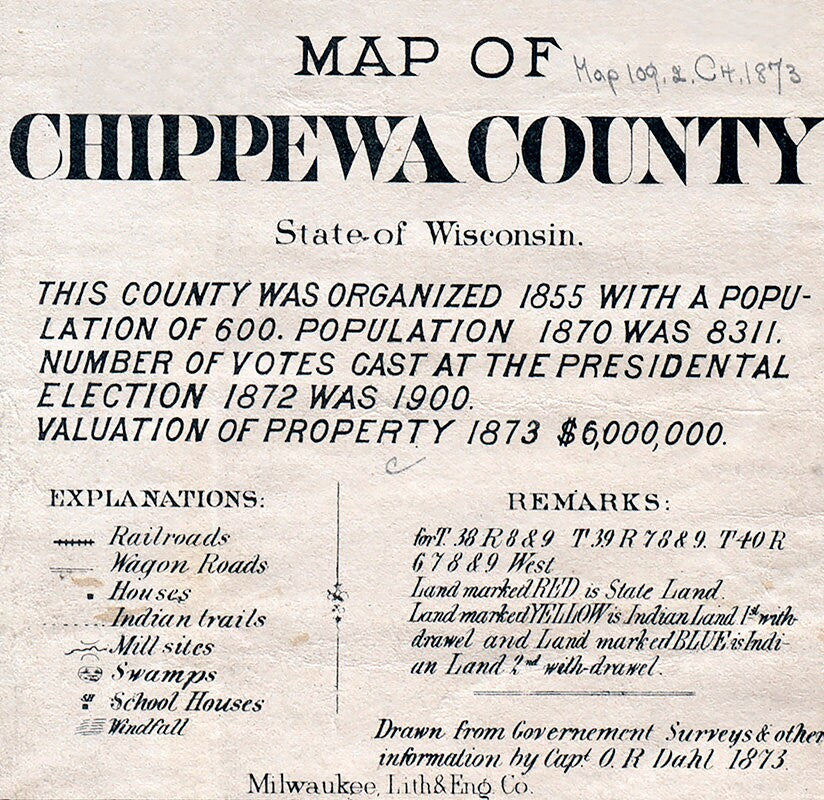 MAP OF
Map 109.2.CH.1873
CHIPPEWA COUNTY
State of Wisconsin.
THIS COUNTY WAS ORGANIZED 1855 WITH A POPU-
LATION OF 600. POPULATION 1870 WAS 8311.
NUMBER OF VOTES CAST AT THE PRESIDENTAL
ELECTION 1872 WAS 1900.
VALUATION OF PROPERTY 1873 $6,000,000.
EXPLANATIONS:
Railroads
Wagon Roads
Houses
Indian trails
Mill sites
Swamps
SH School Houses
Windfall
REMARKS:
for T. 38 R 8 & 9 T 39 R 7 8 & 9. T 40 R
6 7 8 & 9 West
Land marked RED is State Land.
Land marked YELLOW is Indian Land 1st with-
drawel and Land marked BLUE is Indi-
an Land 2nd with-drawel.
Drawn from Governement Surveys & other
information by Capt O. R Dahl 1873.
Milwaukee, Lith & Eng. Co.